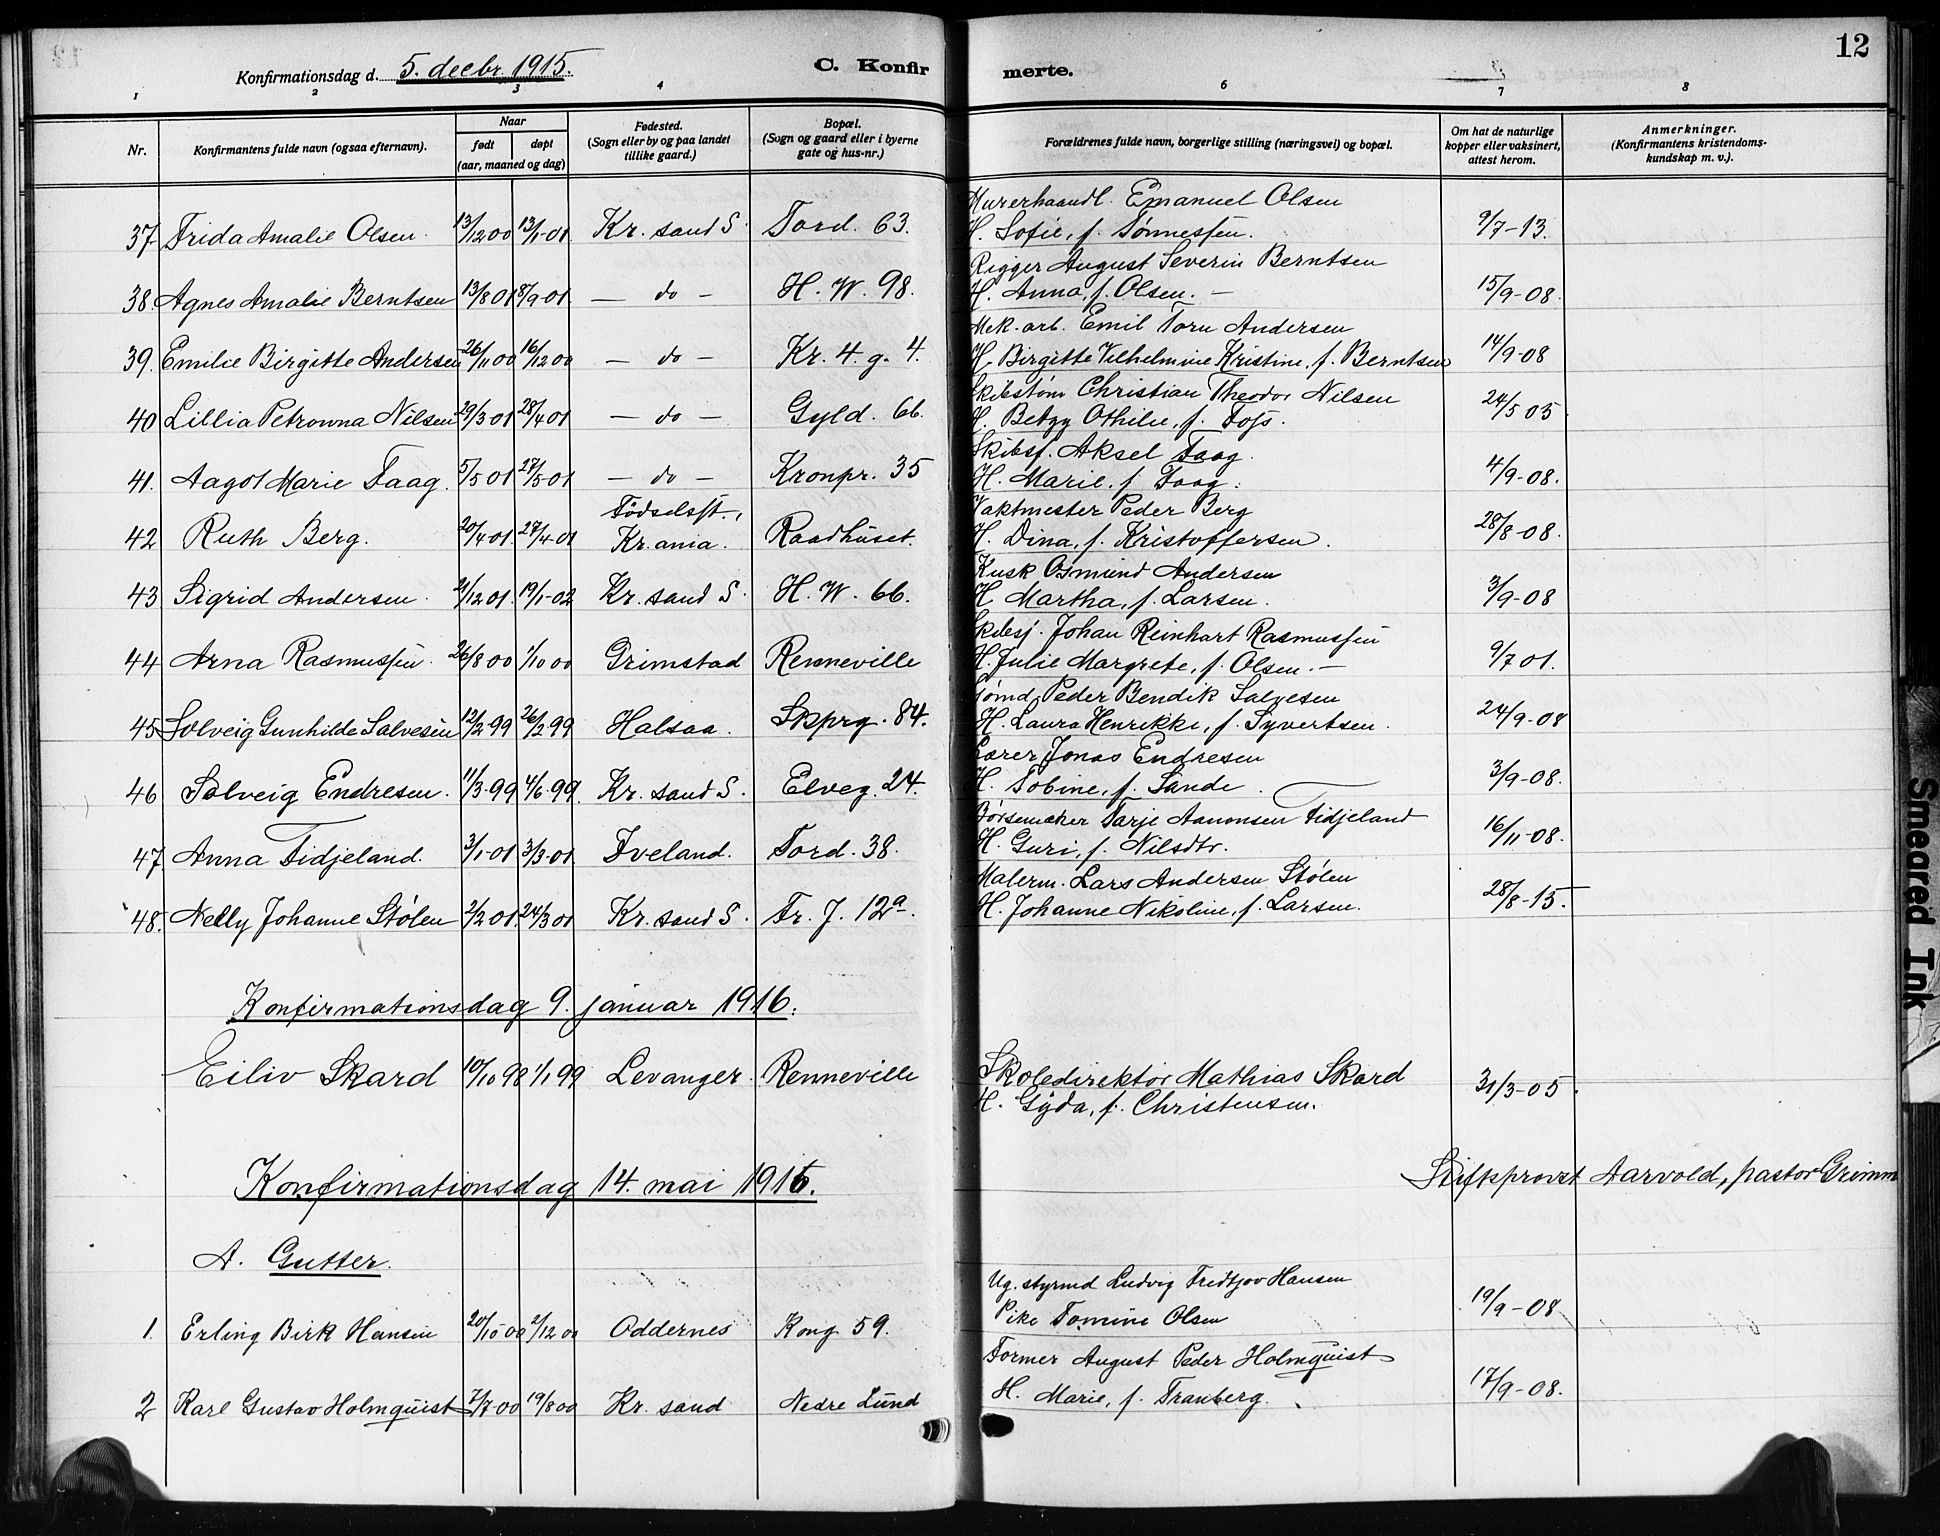 12
Konfirmationsdag d. 5. decbr. 1915.
C. Konfirmerte.
1 2 3 4 6 7 8
Nr.
Konfirmantens fulde navn (ogsaa efternavn).
Naar
født døpt
(aar, maaned og dag)
Fødested.
(Sogn eller by og paa landet
tillike gaard.)
Bopæl.
(Sogn og gaard eller i byerne
gate og hus-nr.)
Forældrenes fulde navn, borgerlige stilling (næringsvei) og bopæl.
Om hat de naturlige
kopper eller vaksinert,
attest herom.
Anmerkninger.
(Konfirmantens kristendoms-
kundskap m. v.).
Murerhaandl. Emanuel Olsen
37 Frida Amalie Olsen. 13/12 00 13/1-01 Kr. sand S. Tord. 63. H. Sofie, f. Tønnessen. 9/7-13.
Rigger August Severin Berntsen
38. Agnes Amalie Berntsen 13/8 01 8/9-01 — do — H. W. 98. H. Anna, f. Olsen. — 15/9-08.
Mek. arb. Emil Toru Andersen
39. Emilie Birgitte Andersen 26/11 00 16/12 00 — do — Kr. 4. g. 4. H. Birgitte Vilhelmine Kristine, f. Berntsen 14/9-08
Skibstøm Christian Theodor Nilsen
40 Lillia Petrowna Nilsen 29/3 01 28/4 01 — do — Gyld. 66. H. Betzy Othilie, f. Foss. 24/5 05
Skibsf. Aksel Faag.
41. Aagot Marie Faag. 5/5 01 27/5-01 — do — Kronpr. 35 H. Marie, f. Faag. 4/9-08.
Fødselsst., Vaktmester Peder Berg
42 Ruth Berg. 20/4 01. 27/4-01 Kr. ania. Raadhuset. H. Dina, f. Kristoffersen. 28/8-08.
Kusk Osmund Andersen
43 Sigrid Andersen. 21/12 01. 19/1-02 Kr. sand S. H. W. 66. H. Martha, f. Larsen. 3/9-08
Skibsj. Johan Reinhart Rasmussen
44 Arna Rasmussen. 26/8 00 1/10 00 Grimstad Renneville H. Julie Margrete, f. Olsen. — 9/7 01.
Sjømd Peder Bendik Salvesen
45 Solveig Gunhilde Salvesen 12/2 99 26/2 99 Halsaa. Skprg. 84. H. Laura Henrikke, f. Syvertsen. 24/9-08
Lærer Jonas Endresen
46 Solveig Endresen. 11/3-99 4/6-99. Kr. sand S. Elveg. 24. H. Tobine, f. Sande. 3/9-08.
Børsemaker Tarje Aanonsen Fidjeland
47. Anna Fidjeland. 3/1-01 3/3-01 Iveland. Tord. 38. H. Guri, f. Nilsdtr. 16/11-08.
Malerm. Lars Andersen Stølen
48. Nelly Johanne Stølen 2/2 01. 24/3 01 Kr. sand S. Fr. J. 12a. H. Johanne Nikoline, f. Larsen. 28/8-15.
Konfirmationsdag 9. januar 1916.
Eiliv Skard 10/10 98 1/1 99 Levanger Renneville Skoledirektør Mathias Skard 31/3-05.
H. Gyda, f. Christensen.
Stiftsprovst Aarvold, pastor Grimm
Konfirmationsdag 14. mai 1916.
A. Gutter.
Ug. styrmd Ludvig Fredtjov Hansen
1. Erling Birk Hansen 20/10 00 2/12 00 Oddernes Kong 59. Pike Tomine Olsen 19/9-08
Former August Peder Holmquist
2 Karl Gustav Holmquist 7/7-00 19/8 00 Kr. sand Nedre Lund H. Marie, f. Tranberg. 17/9-08.
Smeared Ink